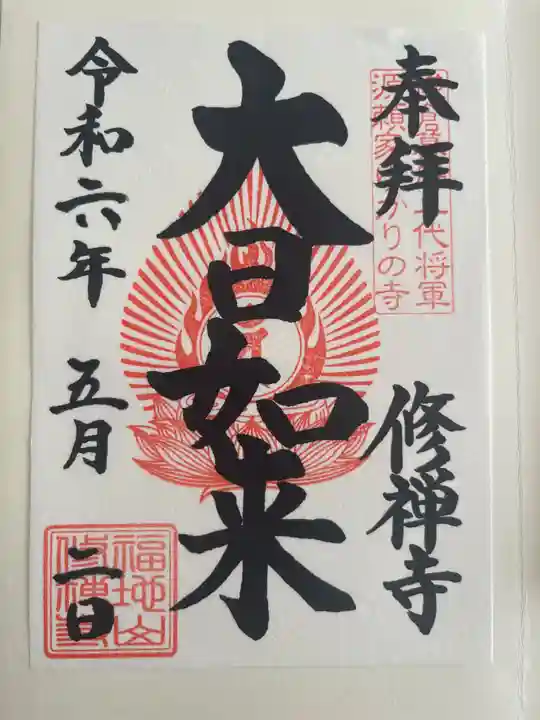 奉拝
二代将軍
源頼家ゆかりの寺
修禅寺
大日如来
令和六年 五月 二日
福地山
修禅寺